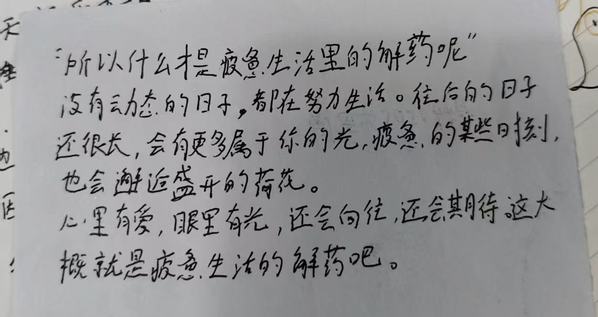 “所以什么才是疲惫生活里的解药呢”
没有动态的日子，都在努力生活。往后的日子
还很长，会有更多属于你的光，疲惫的某些时刻，
也会邂逅盛开的荷花。
心里有爱，眼里有光，还会向往，还会期待。这大
概就是疲惫生活的解药吧。